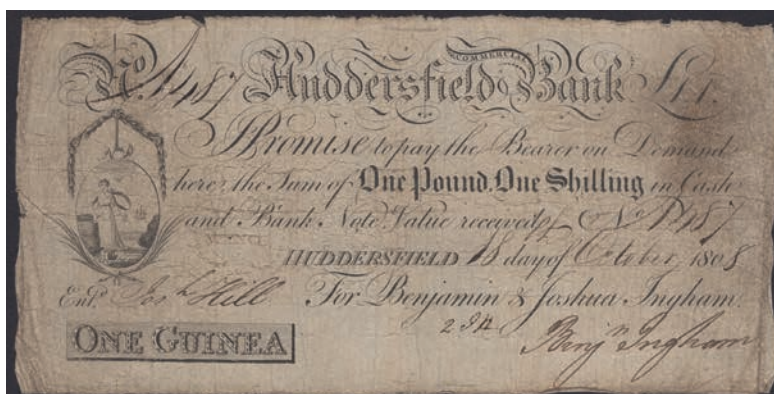 No A487 Huddersfield COMMERCIAL Bank £1.1.
I Promise to pay the Bearer on Demand
here the Sum of One Pound, One Shilling in Cash
and Bank Note Value received No A487
HUDDERSFIELD 18 day of October 1808
Entd. Josh Hill For Benjamin & Joshua Ingham.
ONE GUINEA Benjn Ingham